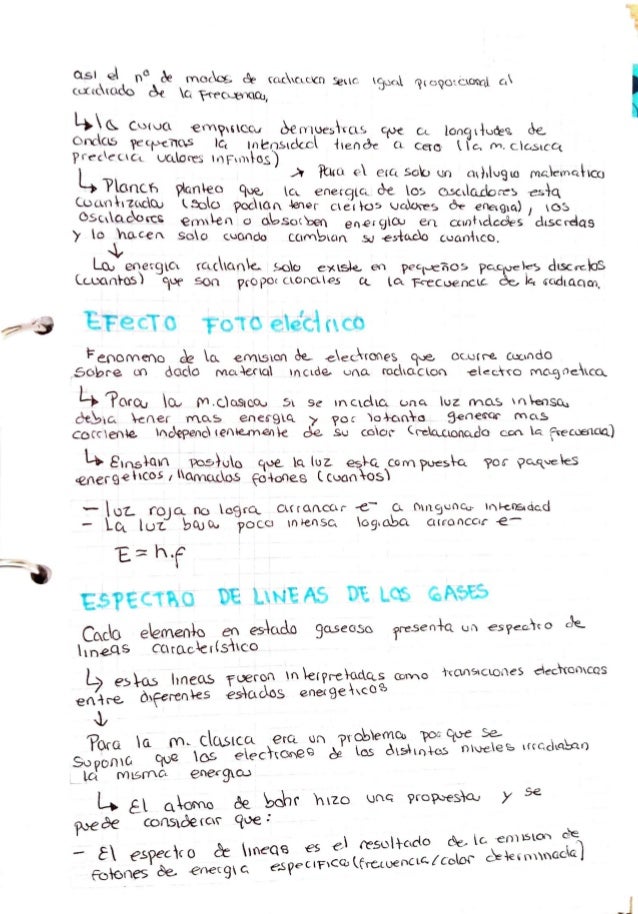 así el nº de modos de radiacion seria igual proporcional al
cuadrado de la frecuencia,
↳ la curva empirica demuestras que a longitudes de
ondas pequeñas la intensidad tiende a cero (la m. clasica
predecia valores infinitos)
↗ Para el era solo un artilugio matematico
↳ Planck planteo que la energia de los osciladores esta
cuantizada (solo podian tener ciertos valores de energia), los
osciladores emiten o absorben energia en cantidades discretas
y lo hacen solo cuando cambian su estado cuantico.
↓
La energia radiante solo existe en pequeños paquetes discretos
(cuantos) que son proporcionales a la frecuencia de la radiacion.
EFECTO FOTO eléctrico
Fenomeno de la emision de electrones que ocurre cuando
sobre un dado material incide una radiacion electro magnetica
↳ Para la m.clasica si se incidia una luz mas intensa,
debia tener mas energia y por lotanto generar mas
corriente independientemente de su color (relacionado con la frecuencia)
↳ Einstan postulo que la luz esta compuesta por paquetes
energeticos, llamados fotones (cuantos)
- luz roja no logra arrancar e- a ninguna intensidad
- La luz baja poco intensa lograba arrancar e-
E = h.f
ESPECTRO DE LINEAS DE LOS GASES
Cada elemento en estado gaseoso presenta un espectro de
lineas característico
↳ estas lineas fueron interpretadas como transiciones electronicas
entre diferentes estados energeticos
↓
Para la m. clasica era un problema por que se
suponia que los electrones de los distintos niveles irradiaban
la misma energia
↳ El atomo de bohr hizo una propuesta y se
puede considerar que:
- El espectro de lineas es el resultado de la emision de
fotones de energia especifica (frecuencia/color determinada)